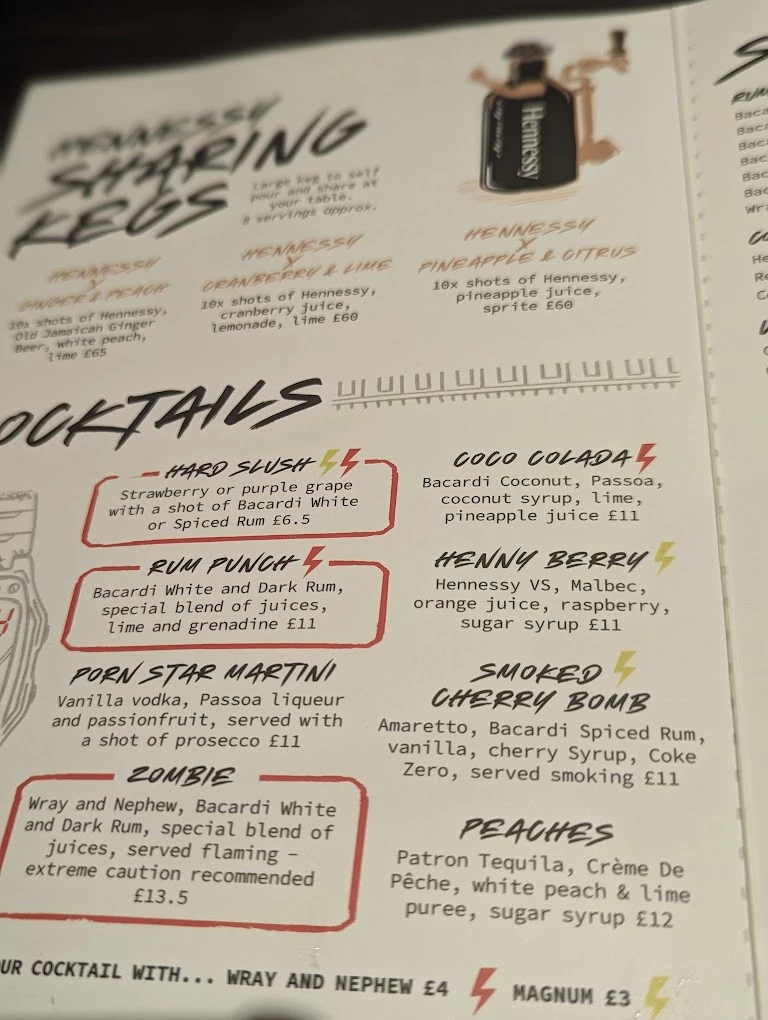 HENNESSY
SHARING
KEGS
Large keg to self
pour and share at
your table.
8 servings approx.
Hennessy
HENNESSY
X
GINGER & PEACH
10x shots of Hennessy,
Old Jamaican Ginger
Beer, white peach,
lime £65
HENNESSY
X
CRANBERRY & LIME
10x shots of Hennessy,
cranberry juice,
lemonade, lime £60
HENNESSY
X
PINEAPPLE & CITRUS
10x shots of Hennessy,
pineapple juice,
sprite £60
OCKTAILS
HARD SLUSH
Strawberry or purple grape
with a shot of Bacardi White
or Spiced Rum £6.5
RUM PUNCH
Bacardi White and Dark Rum,
special blend of juices,
lime and grenadine £11
PORN STAR MARTINI
Vanilla vodka, Passoa liqueur
and passionfruit, served with
a shot of prosecco £11
ZOMBIE
Wray and Nephew, Bacardi White
and Dark Rum, special blend of
juices, served flaming –
extreme caution recommended
£13.5
COCO COLADA
Bacardi Coconut, Passoa,
coconut syrup, lime,
pineapple juice £11
HENNY BERRY
Hennessy VS, Malbec,
orange juice, raspberry,
sugar syrup £11
SMOKED
CHERRY BOMB
Amaretto, Bacardi Spiced Rum,
vanilla, cherry Syrup, Coke
Zero, served smoking £11
PEACHES
Patron Tequila, Crème De
Pêche, white peach & lime
puree, sugar syrup £12
UR COCKTAIL WITH... WRAY AND NEPHEW £4 MAGNUM £3